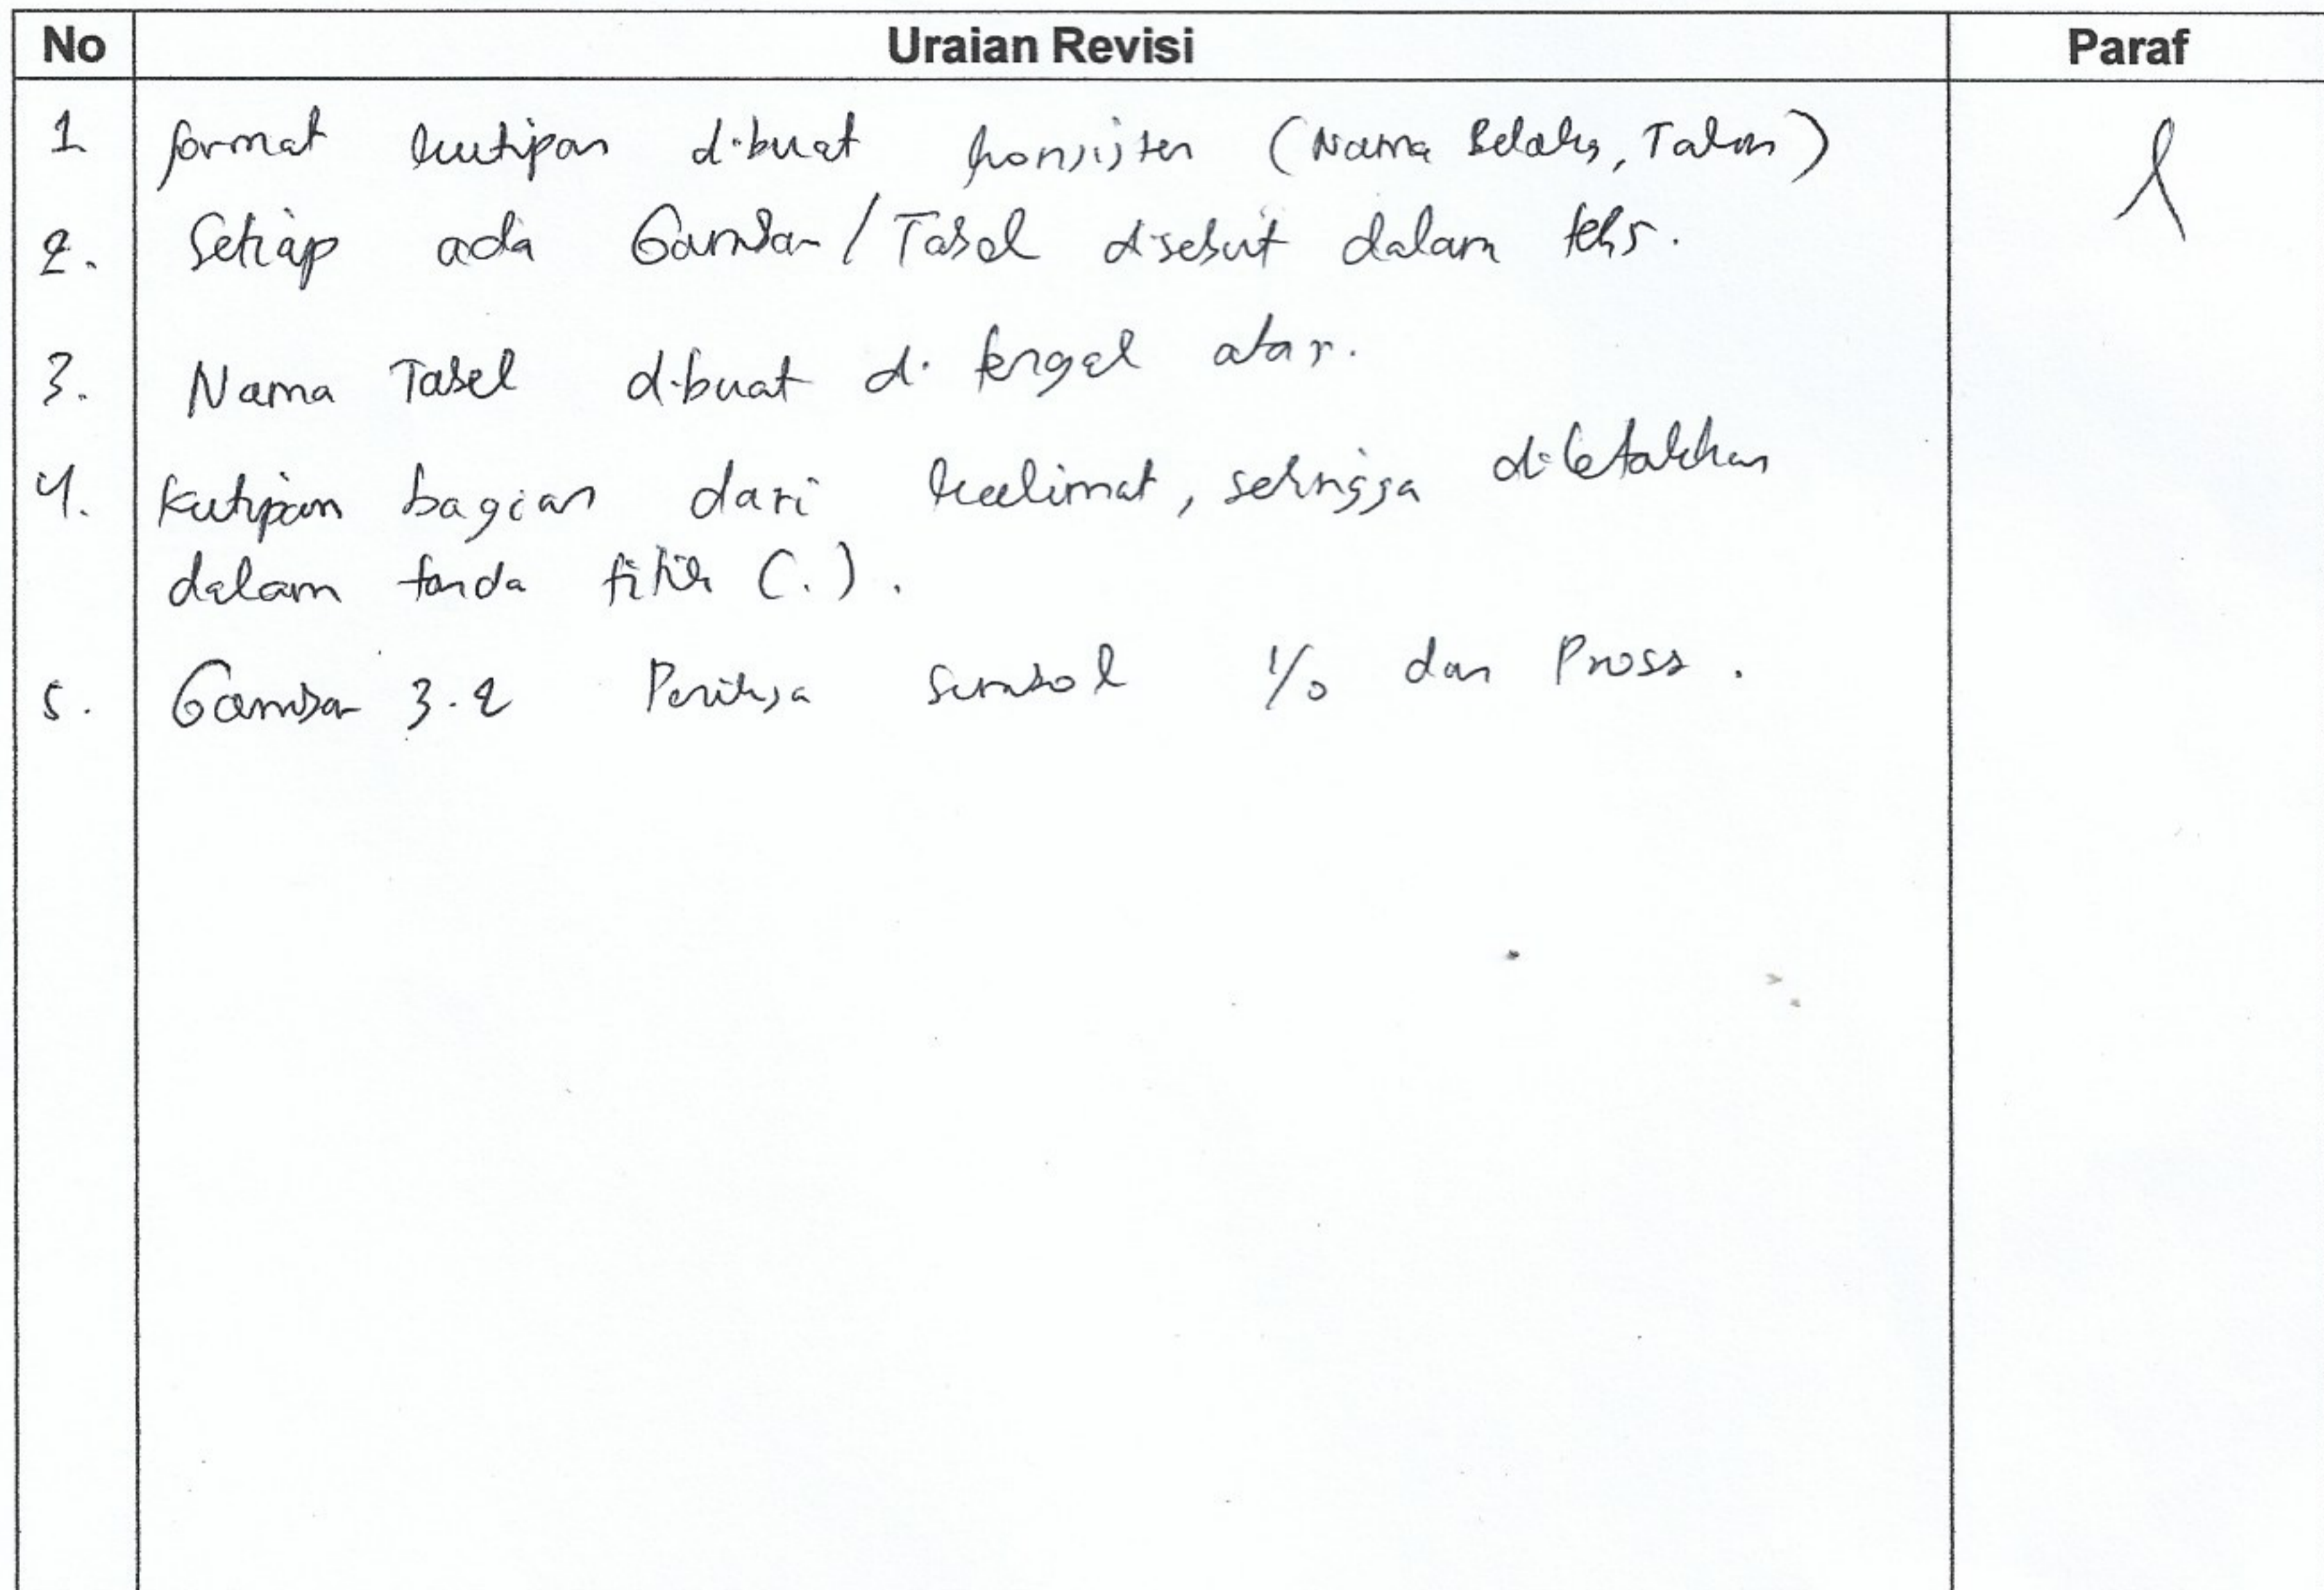 No Uraian Revisi Paraf
1 format kutipan dibuat konsisten (Nama Belakg, Tahun)
2. Setiap ada Gambar / Tabel disebut dalam teks.
3. Nama Tabel dibuat di tengah atas.
4. Kutipan bagian dari kalimat, sehingga diletakkan
dalam tanda titik (.).
5. Gambar 3.2 Periksa simbol I/O dan Proses.